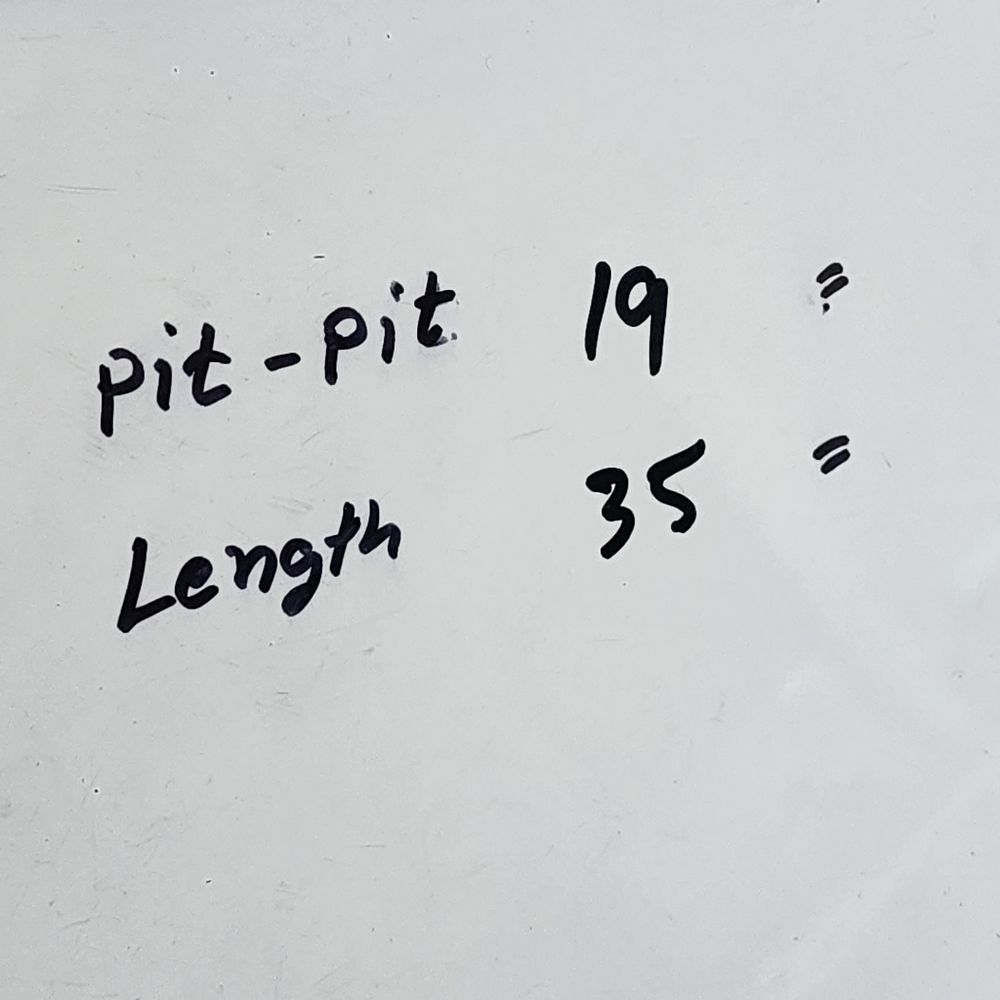 pit-pit 19 "
Length 35 "